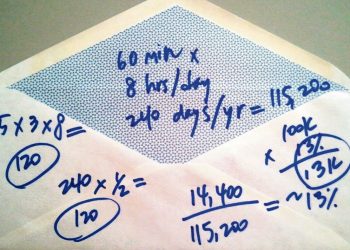 60 min x
8 hrs/day
240 days/yr = 115,200
5 x 3 x 8 =
120
240 x ½ =
120
100K
x 13%
13K
14,400
115,200
= ~13%